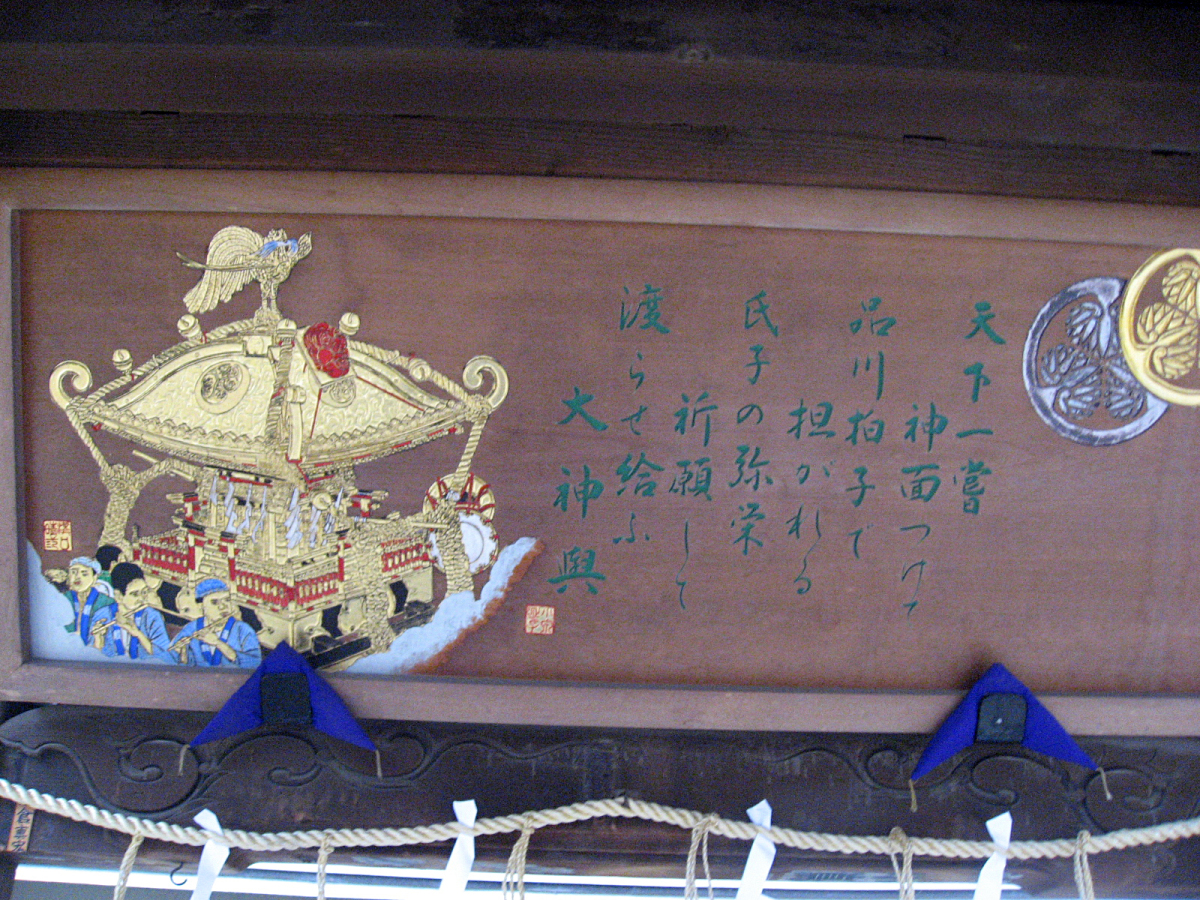 天下一嘗
神面つけて
品川拍子で
担がれる
氏子の弥栄
祈願して
渡らせ給ふ
大神輿